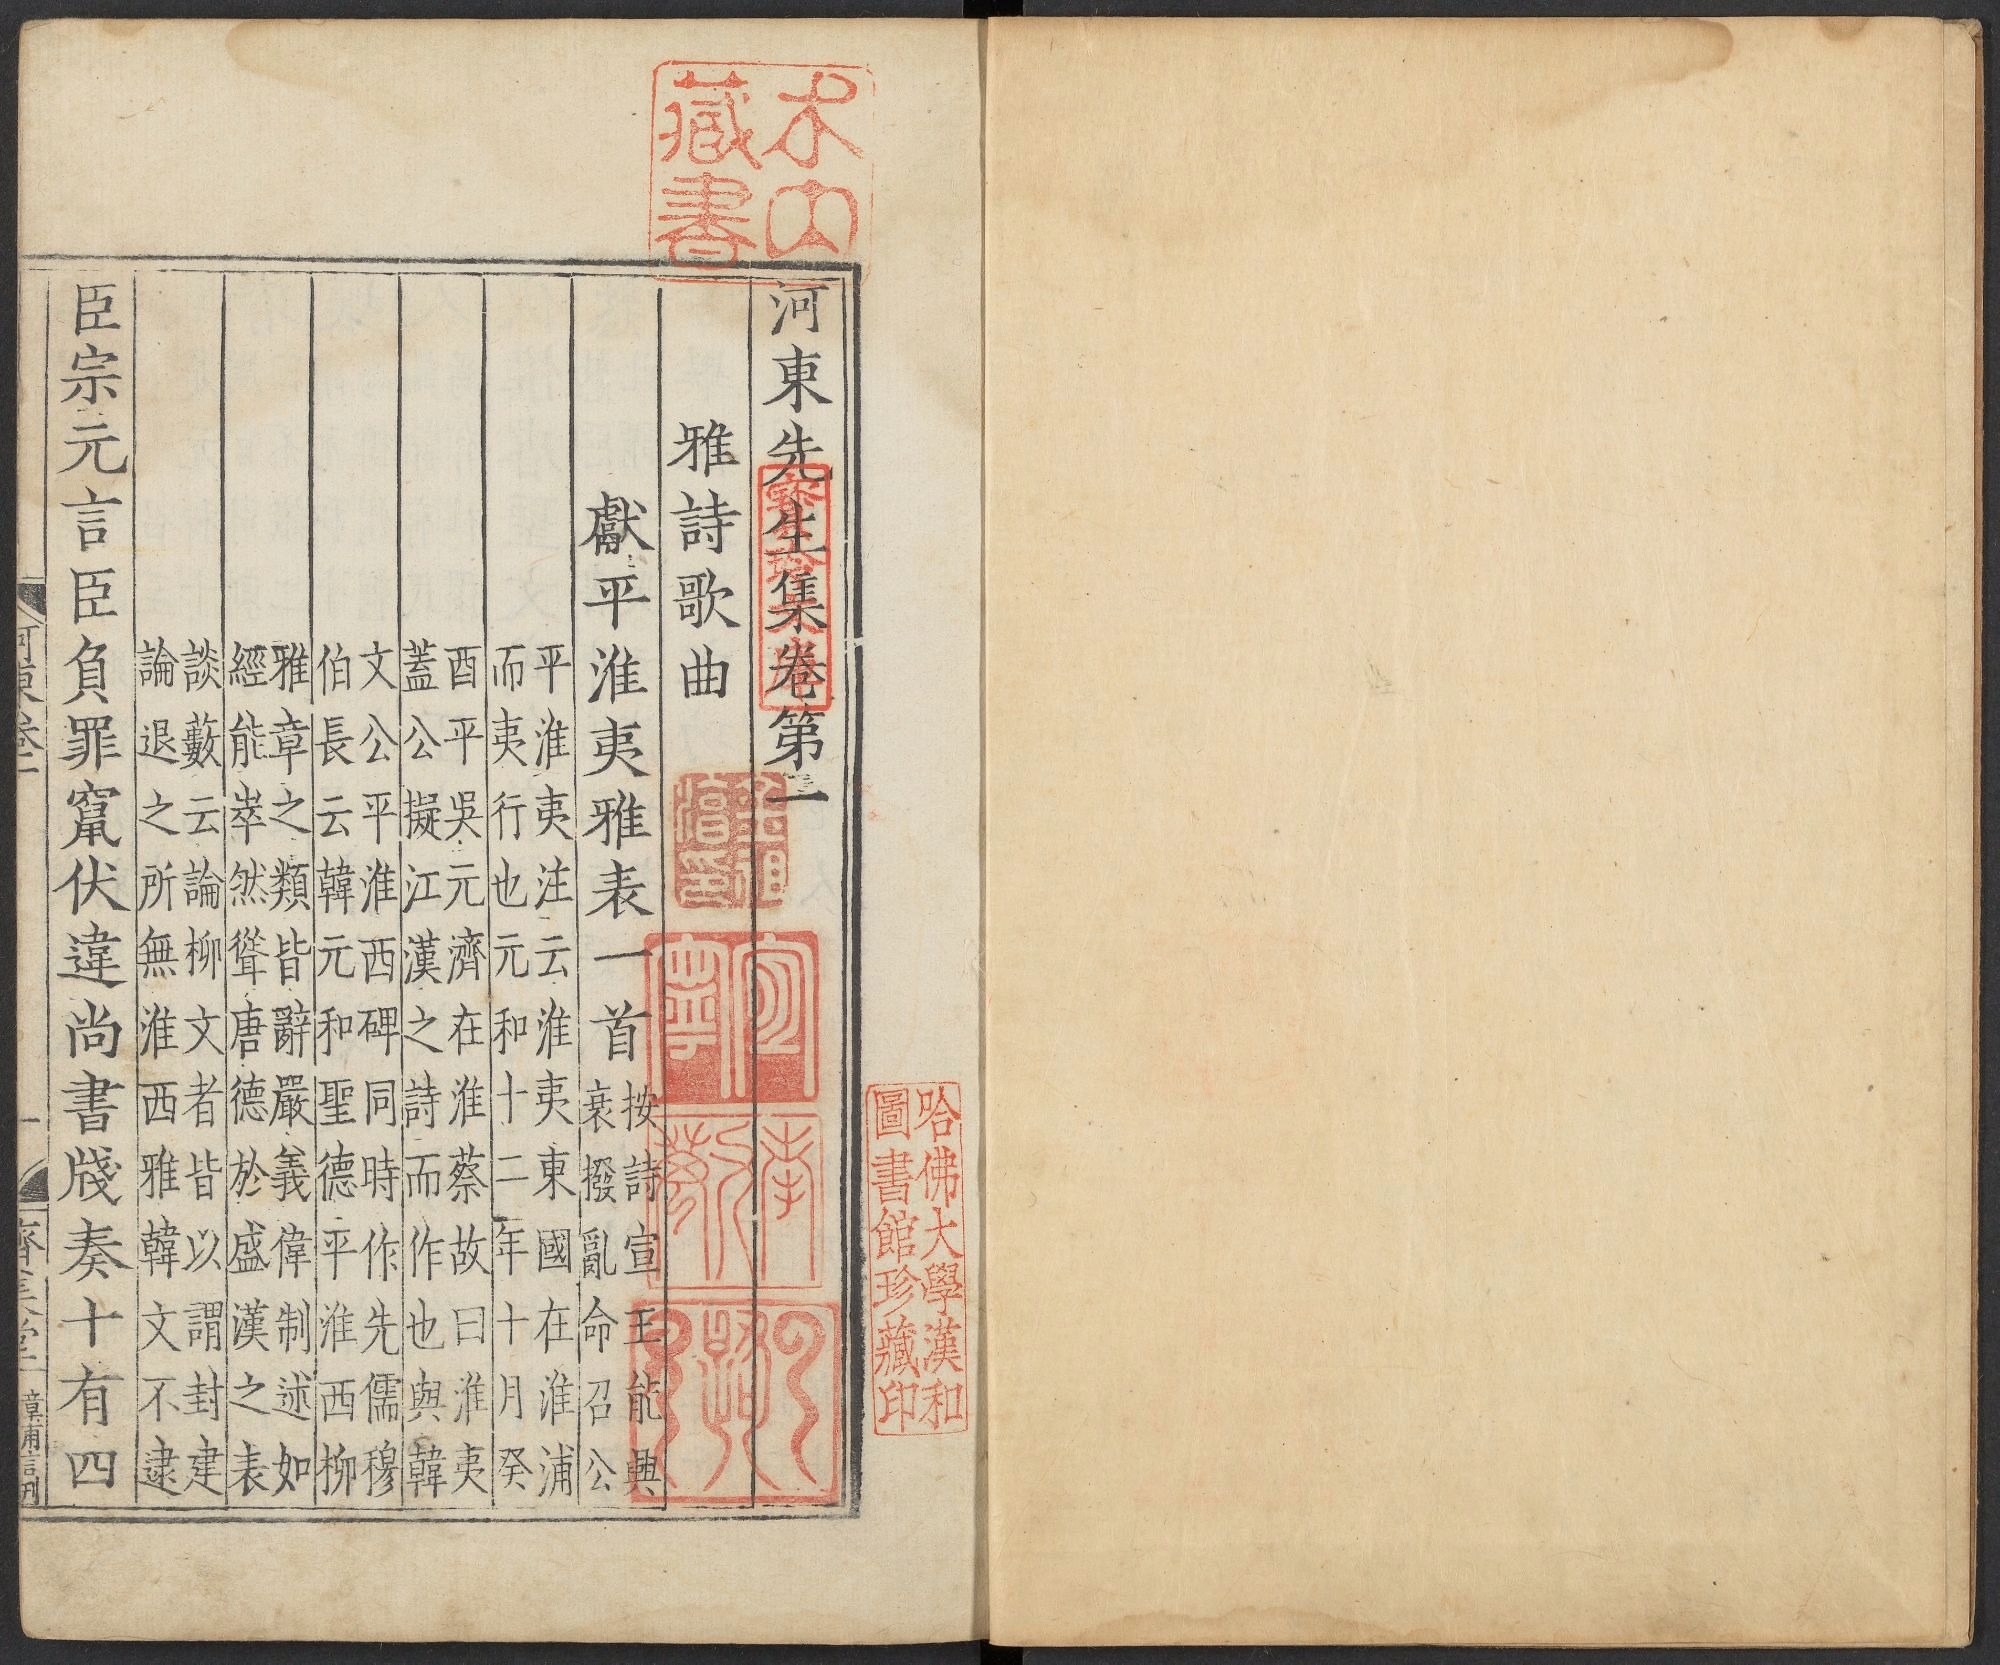 河東先生集卷第一
雅詩歌曲
獻平淮夷雅表一首
按詩宣王能興
衰撥亂命召公
平淮夷注云淮夷東國在淮浦
而夷行也元和十二年十月癸
酉平吳元濟在淮蔡故曰淮夷
蓋公擬江漢之詩而作也與韓
文公平淮西碑同時作先儒穆
伯長云韓元和聖德平淮西柳
雅章之類皆辭嚴義偉制述如
經能崒然聳唐德於盛漢之表
談藪云論柳文者皆以謂封建
論退之所無淮西雅韓文不逮
臣宗元言臣負罪竄伏違尚書牋奏十有四
河東卷一
一
木山
藏書
哈佛大學漢和
圖書館珍藏印